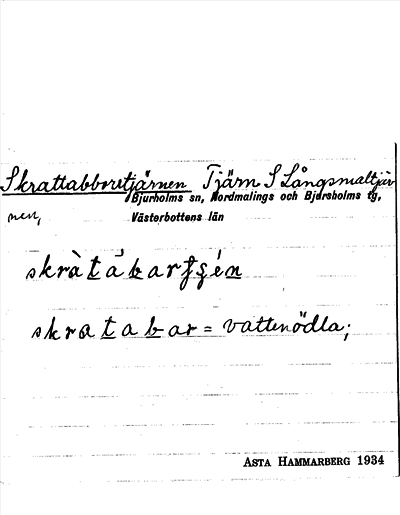 Skrattabboretjärnen Tjärn S Långsmaltjär
Bjurholms sn, Nordmalings och Bjursholms tg,
nen,
Västerbottens län
skràtábartʂén
skratabar = vattenödla;
ASTA HAMMARBERG 1934